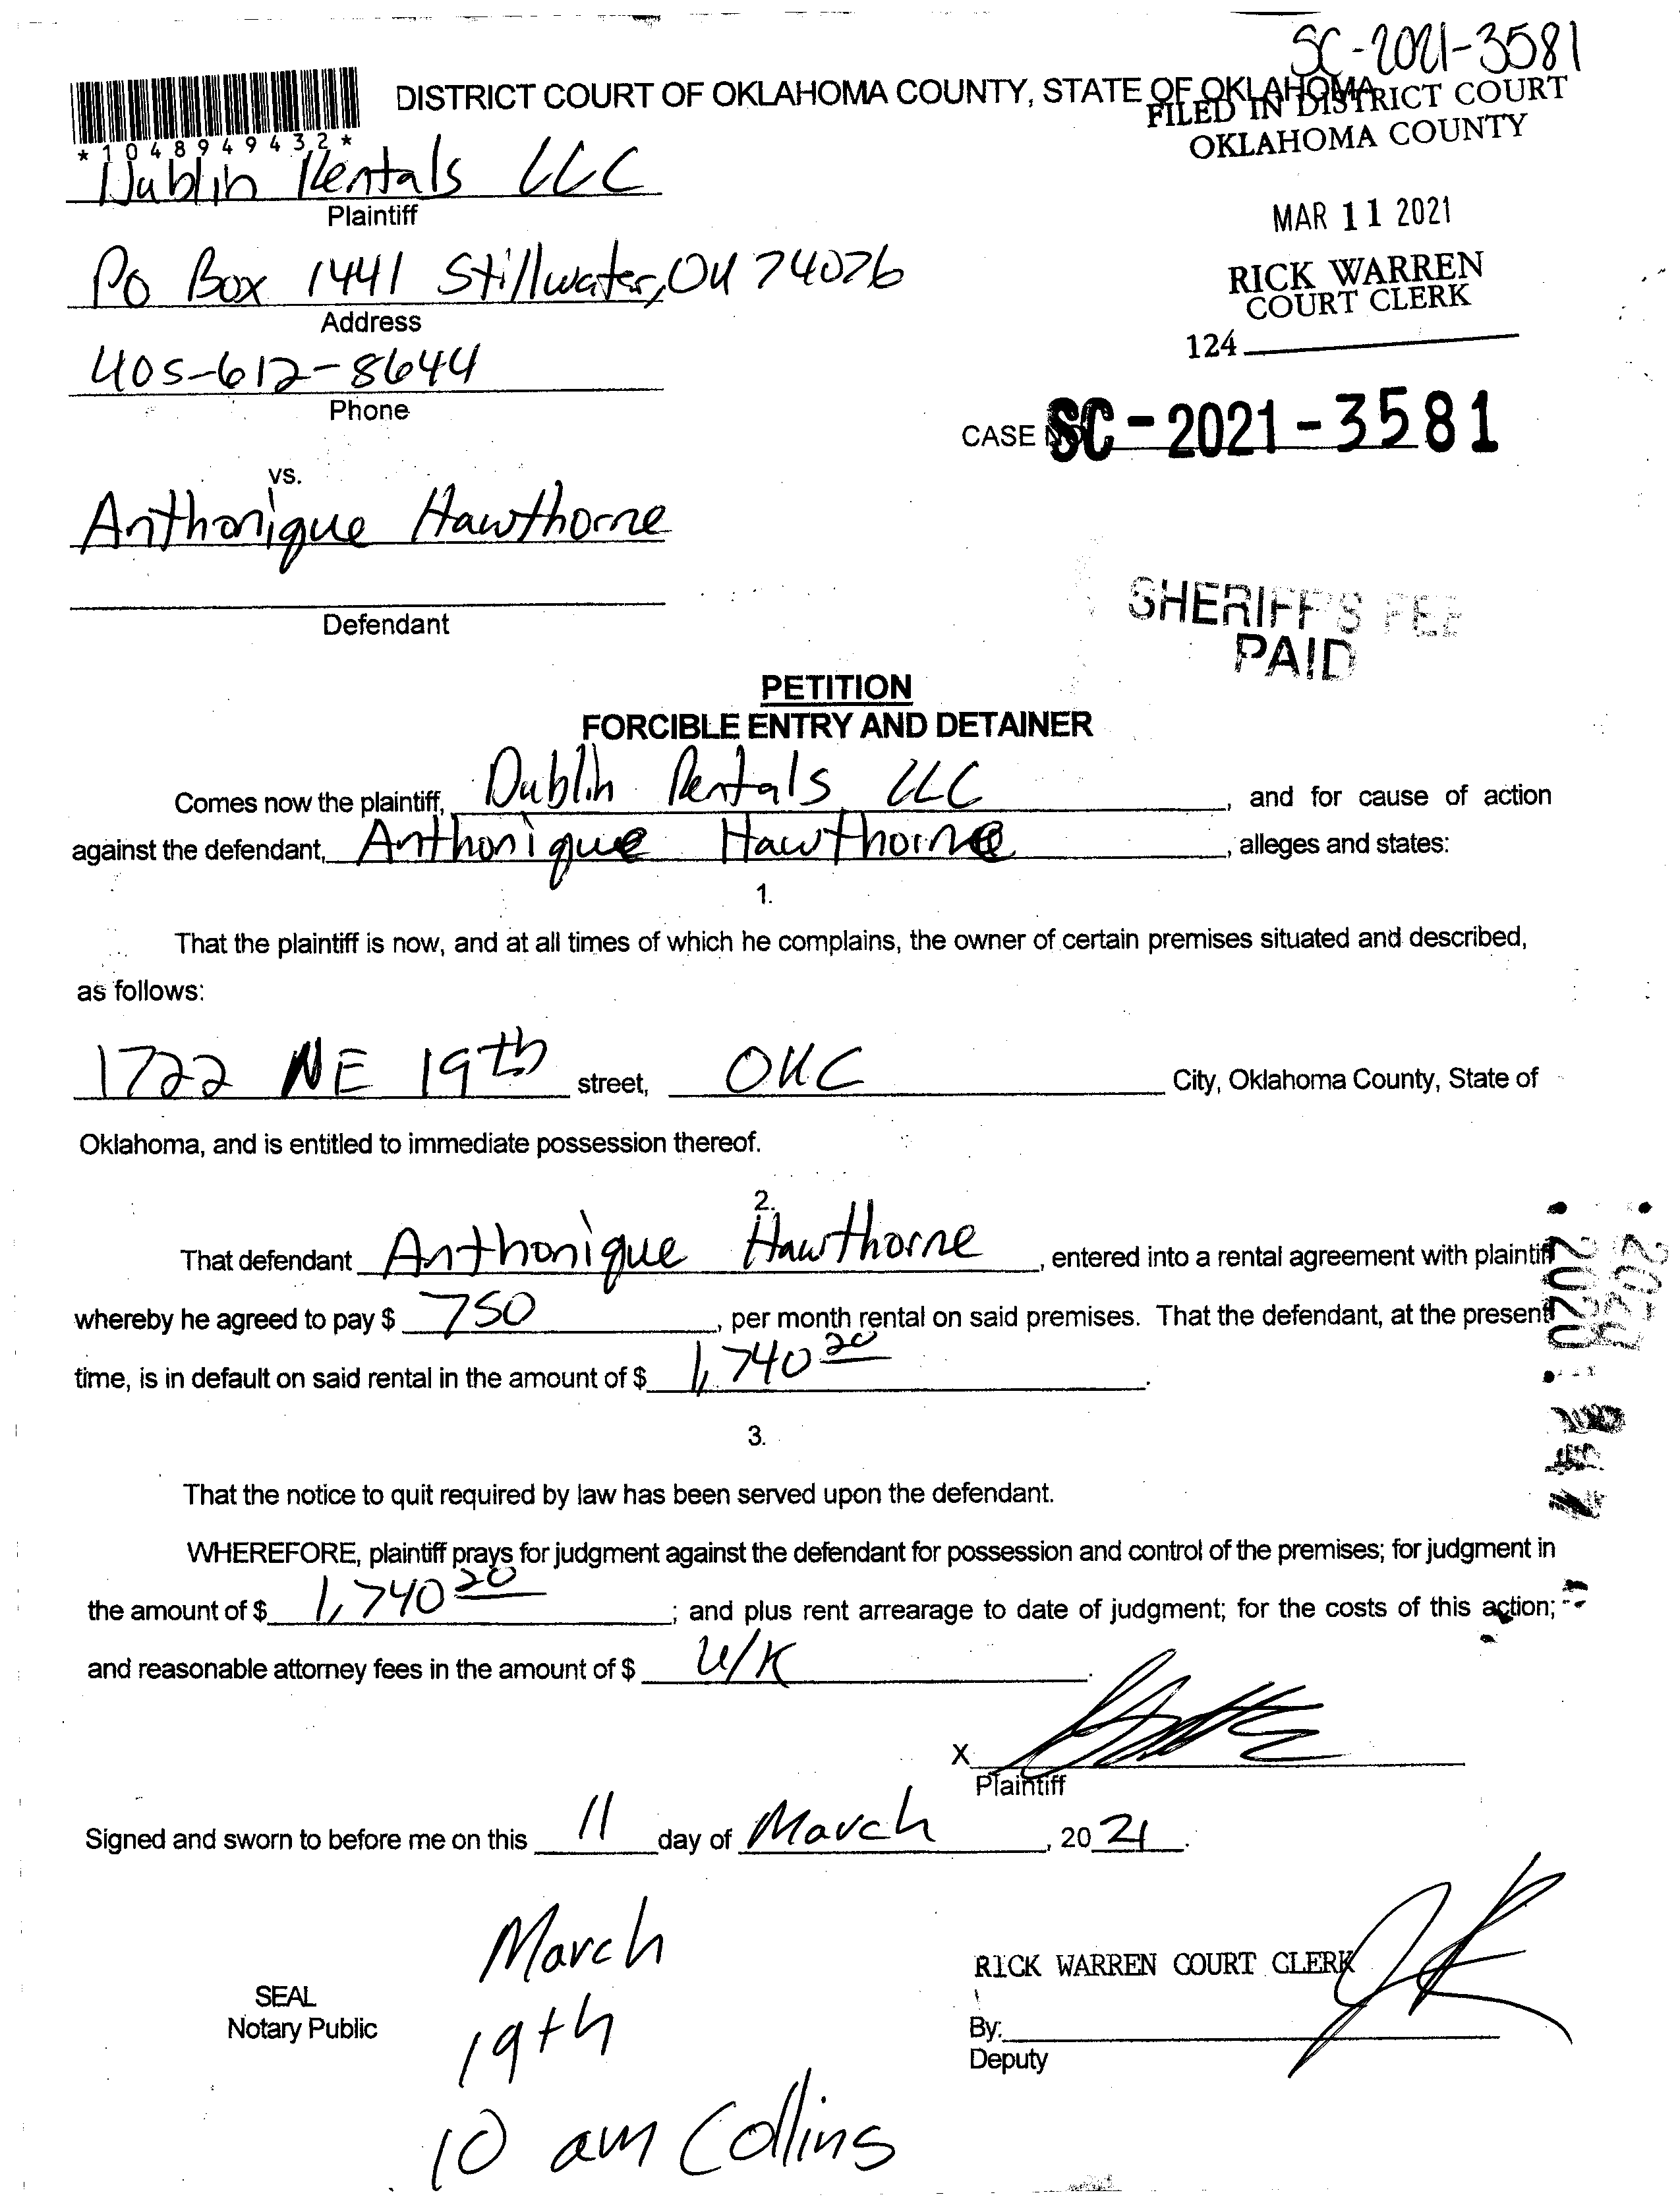 SC-2021-3581
DISTRICT COURT OF OKLAHOMA COUNTY, STATE OF OKLAHOMA
FILED IN DISTRICT COURT
OKLAHOMA COUNTY
*1048949432*
Dublin Rentals LLC
Plaintiff
MAR 11 2021
PO Box 1441 Stillwater, OK 74076
RICK WARREN
COURT CLERK
Address
124
405-612-8644
Phone
CASE NO. SC-2021-3581
vs.
Anthonique Hawthorne
Defendant
SHERIFF'S FEE
PAID
PETITION
FORCIBLE ENTRY AND DETAINER
Comes now the plaintiff, Dublin Rentals LLC, and for cause of action
against the defendant, Anthonique Hawthorne, alleges and states:
1.
That the plaintiff is now, and at all times of which he complains, the owner of certain premises situated and described,
as follows:
1722 NE 19th street, OKC City, Oklahoma County, State of
Oklahoma, and is entitled to immediate possession thereof.
2.
That defendant Anthonique Hawthorne, entered into a rental agreement with plaintiff
whereby he agreed to pay $ 750, per month rental on said premises. That the defendant, at the present
time, is in default on said rental in the amount of $ 1,740 20.
3.
That the notice to quit required by law has been served upon the defendant.
WHEREFORE, plaintiff prays for judgment against the defendant for possession and control of the premises; for judgment in
the amount of $ 1,740 20; and plus rent arrearage to date of judgment; for the costs of this action;
and reasonable attorney fees in the amount of $ U/K.
X
Plaintiff
Signed and sworn to before me on this 11 day of March, 20 21.
March
19th
10 am Collins
SEAL
Notary Public
RICK WARREN COURT CLERK
By:
Deputy